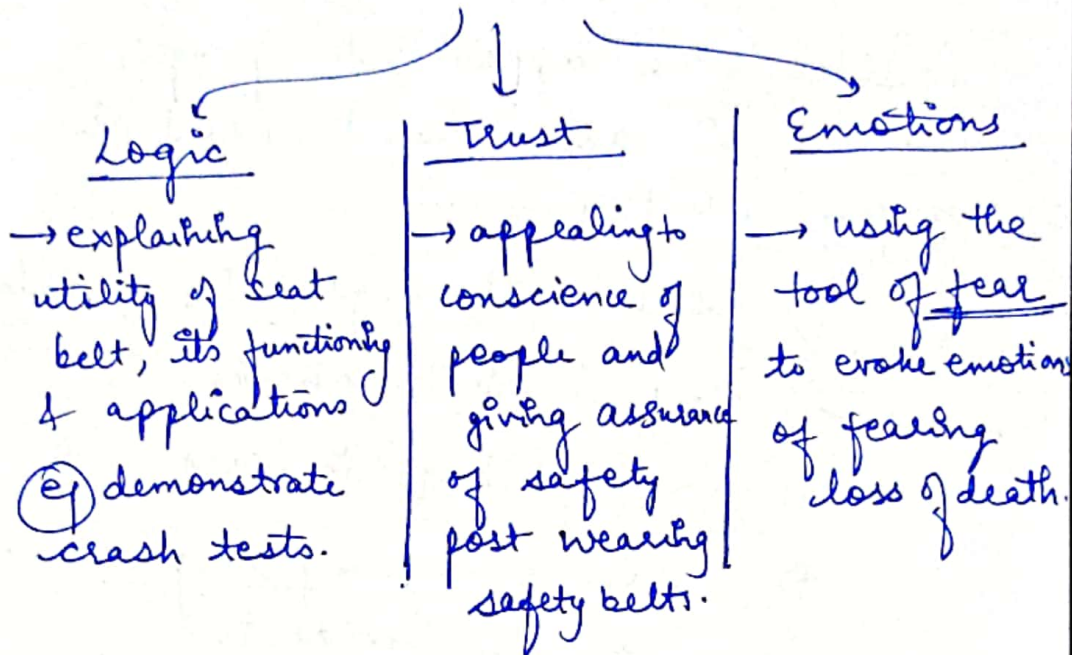 Logic
→ explaining
utility of seat
belt, its functioning
& applications
eg demonstrate
crash tests.
Trust
→ appealing to
conscience of
people and
giving assurance
of safety
post wearing
safety belts.
Emotions
→ using the
tool of fear
to evoke emotions
of fearing
loss of death.